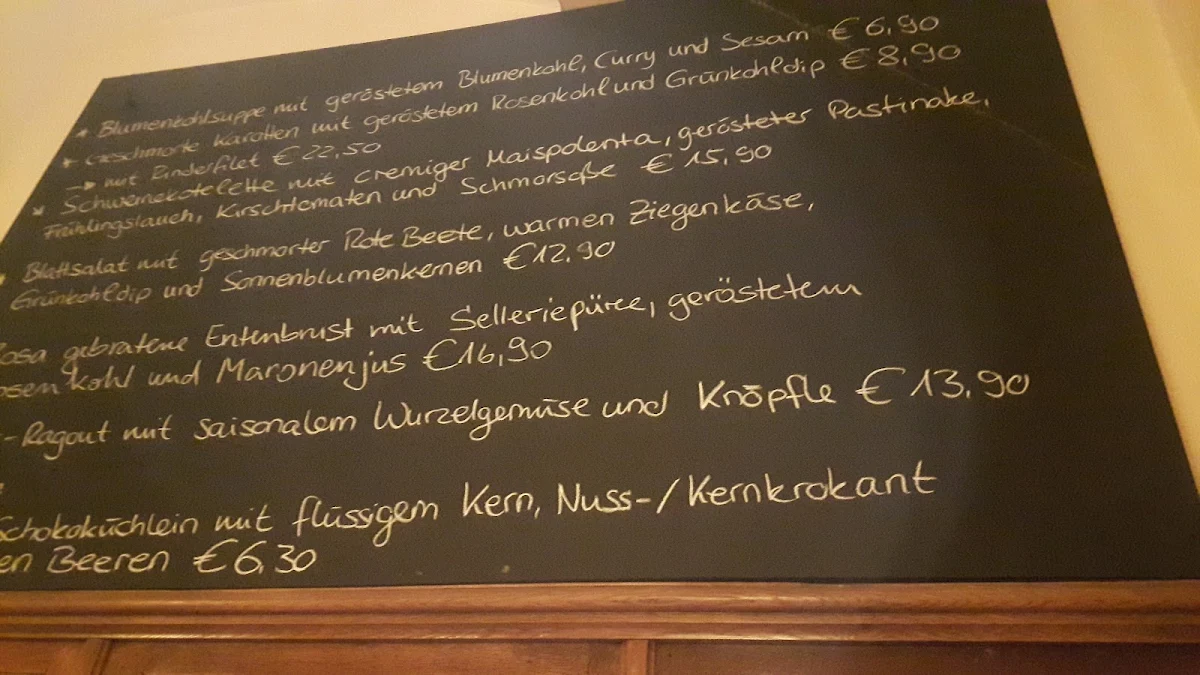 * Blumenkohlsuppe mit geröstetem Blumenkohl, Curry und Sesam € 6,90
* Geschmorte Karotten mit geröstetem Rosenkohl und Grünkohldip € 8,90
→ mit Rinderfilet € 22,50
* Schweinekotelette mit cremiger Maispolenta, gerösteter Pastinake,
Frühlingslauch, Kirschtomaten und Schmorsoße € 15,90
Blattsalat mit geschmorter Rote Beete, warmen Ziegenkäse,
Grünkohldip und Sonnenblumenkernen € 12,90
Rosa gebratene Entenbrust mit Selleriepüree, geröstetem
osenkohl und Maronenjus € 16,90
-Ragout mit saisonalem Wurzelgemüse und Knöpfle € 13,90
Schokoküchlein mit flüssigem Kern, Nuss-/Kernkrokant
en Beeren € 6,30